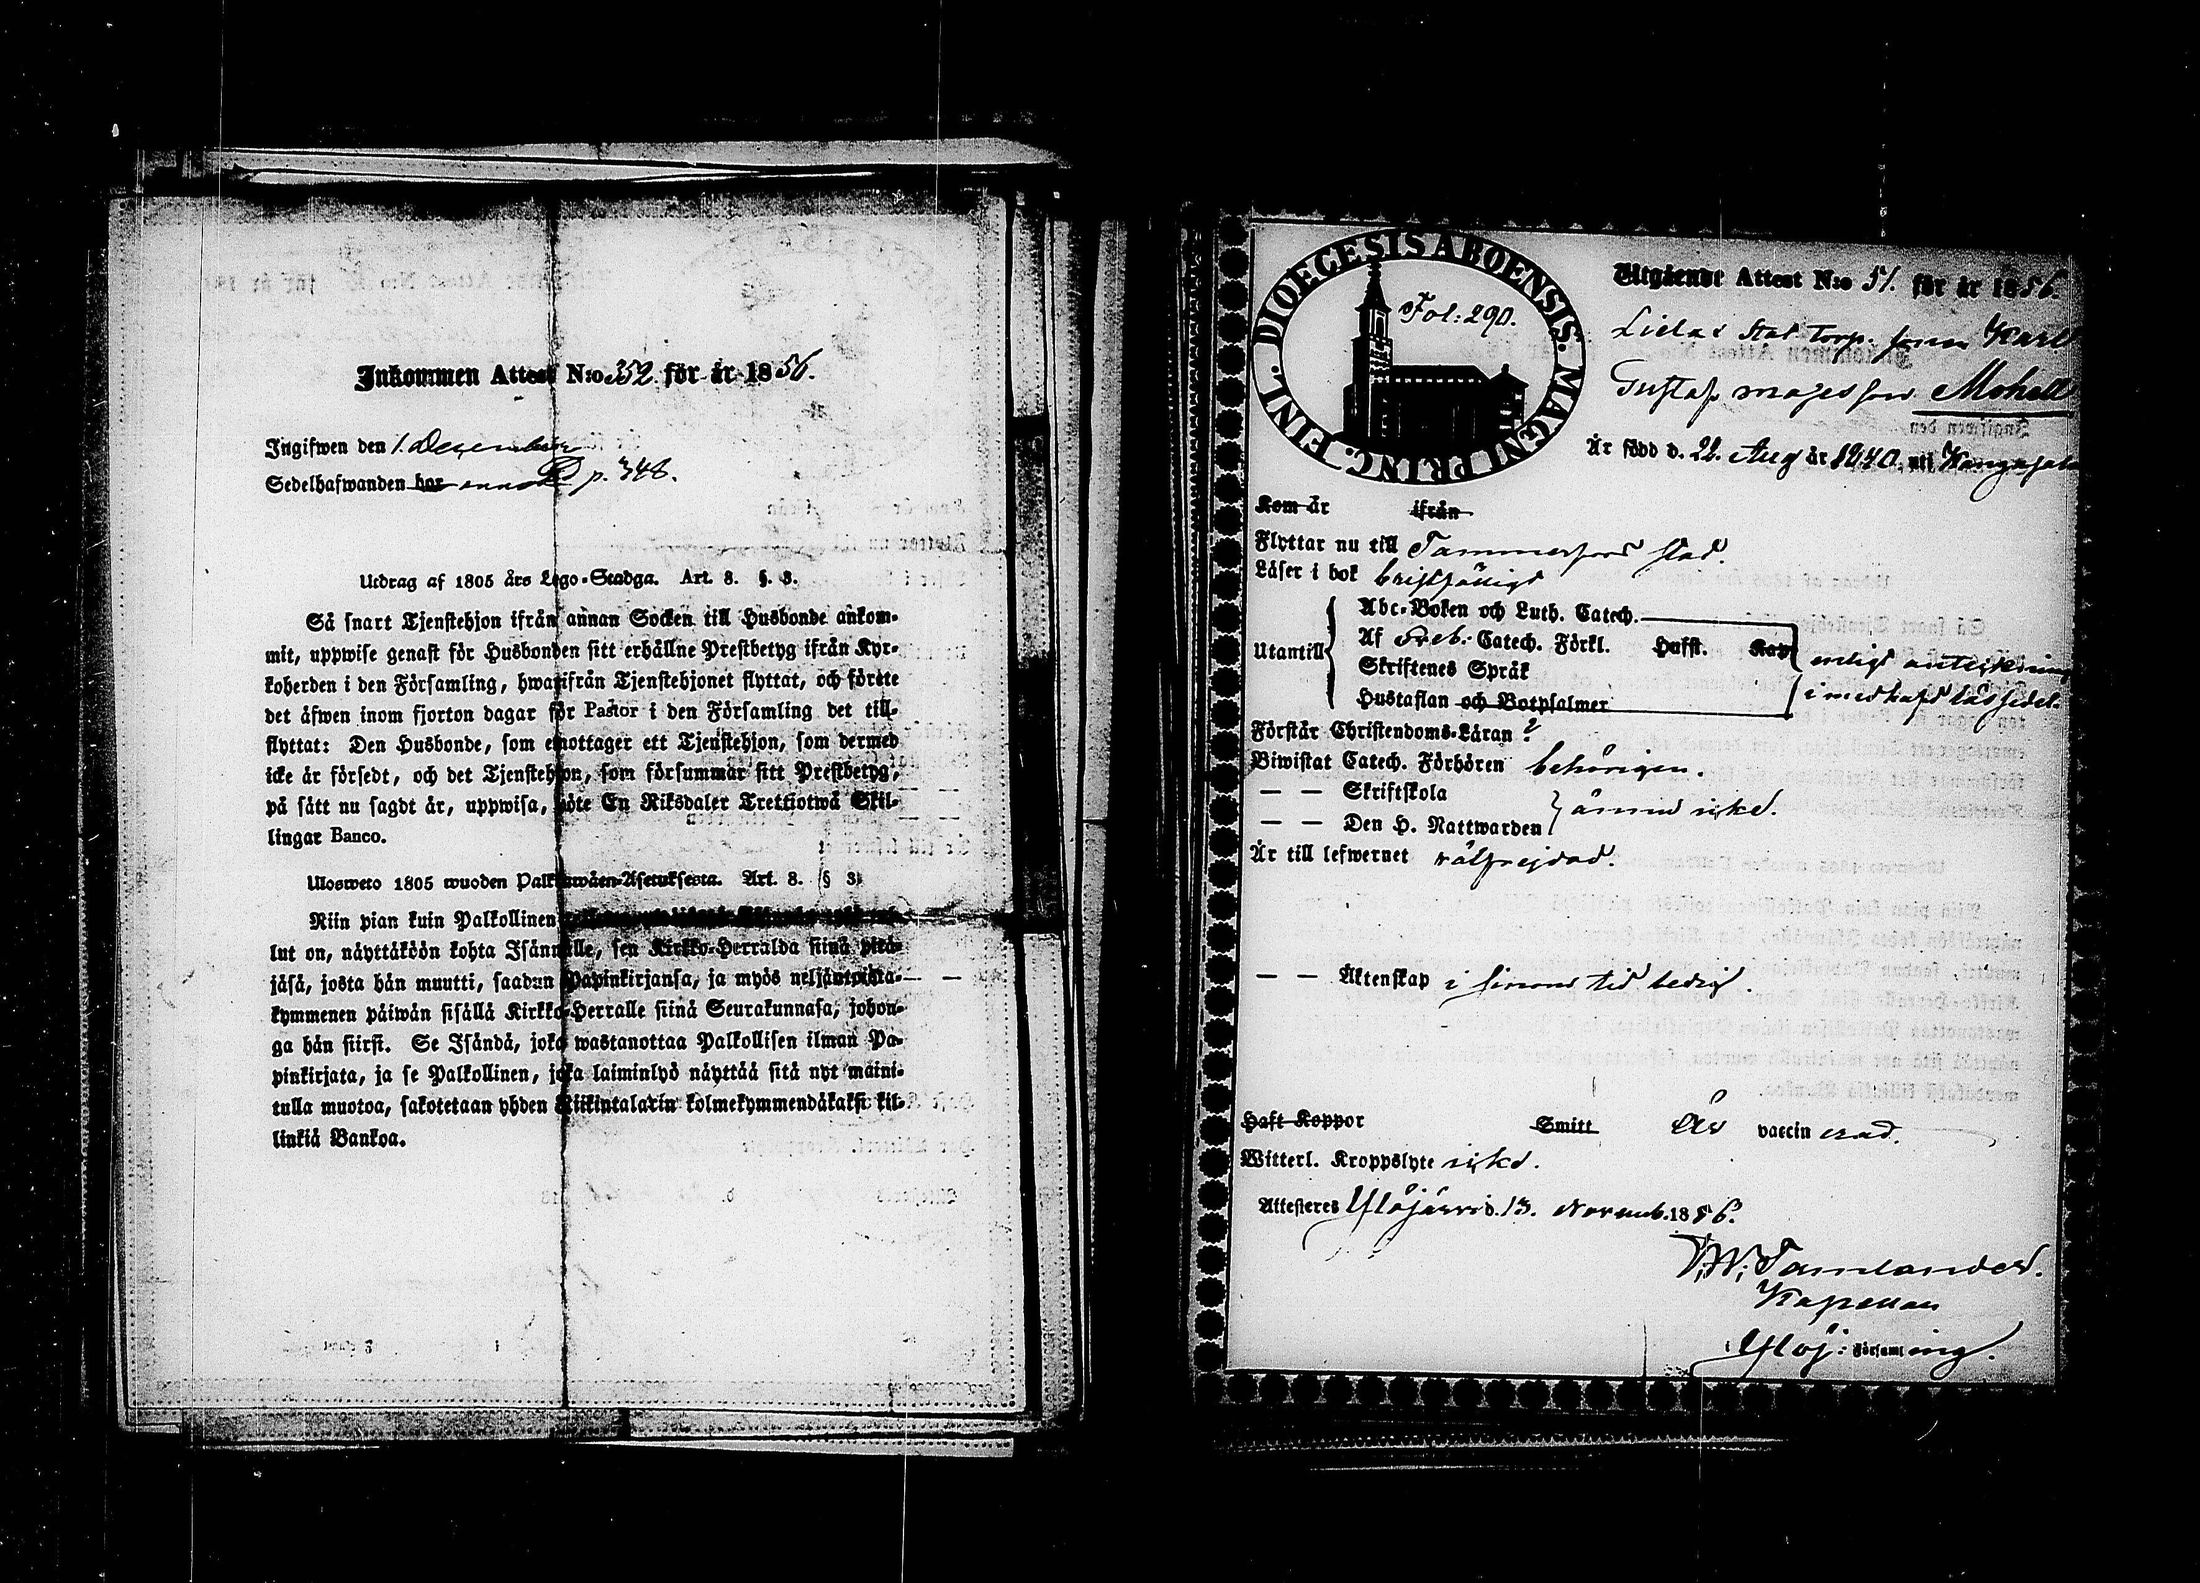 Inkommen Attest N:o 352. för år 1856.
Ingifwen den 1. December
Sedelhafwanden har p. 348.
Utdrag af 1805 års Lego-Stadga. Art. 8. §. 3.
Så snart Tjenstehjon ifrån annan Socken till Husbonde ankom-
mit, uppwise genast för Husbonden sitt erhållne Prestbetyg ifrån Kyr-
koherden i den Församling, hwarifrån Tjenstehjonet flyttat, och förete
det äfwen inom fjorton dagar för Pastor i den Församling det till-
flyttat: Den Husbonde, som emottager ett Tjenstehjon, som dermed
icke är försedt, och det Tjenstehjon, som försummar sitt Prestbetyg,
på sätt nu sagdt är, uppwisa, böte En Riksdaler Trettiotwå Skil-
lingar Banco.
Ulosweto 1805 wuoden Palkkawäen-Asetuksesta. Art. 8. § 3.
Niin pian kuin Palkollinen
lut on, näyttäköön kohta Isännälle, sen Kirkko-Herralda siinä pitä-
jäsä, josta hän muutti, saadun Papinkirjansa, ja myös neljäntoista-
kymmenen päiwän sisällä Kirkko-Herralle siinä Seurakunnasa, johon-
ga hän siirsi. Se Isändä, joka wastanottaa Palkollisen ilman Pa-
pinkirjata, ja se Palkollinen, joka laiminlyö näyttää sitä nyt maini-
tulla muotoa, sakotetaan yhden Riikintalarin kolmekymmendäkaksi kil-
linkiä Bankoa.
DIOECESIS ABOENSIS. MAGNI PRINC. FINL.
Fol: 290.
Utgående Attest N:o 51. för år 1856.
Lielax Stat torp. sonen Karl
Gustaf Mohell
Är född d. 22. Aug år 1840, uti Kangasala
Kom år ifrån
Flyttar nu till Tammerfors stad.
Läser i bok bristfälligt
Utantill
Abc-Boken och Luth. Catech.
Af Sveb. Catech. Förkl. Husst. Kap
Skriftenes Språk
Hustaflan och Botpsalmer
enligt anteckning
i medhafd läs sedel.
Förstår Christendoms-Läran ?
Biwistat Catech. Förhören behörigen.
— — Skriftskola
— — Den H. Nattwarden
ännu icke.
Är till lefwernet välfrejdad.
— — Äktenskap i sinom tid ledig.
Haft Koppor Smitt Är vaccinerad.
Witterl. Kroppslyte icke.
Attesteres Ylöjärvi d. 13. Novemb. 1856.
V. W. Tamlander.
Kapellan
i Ylöj: Församling.